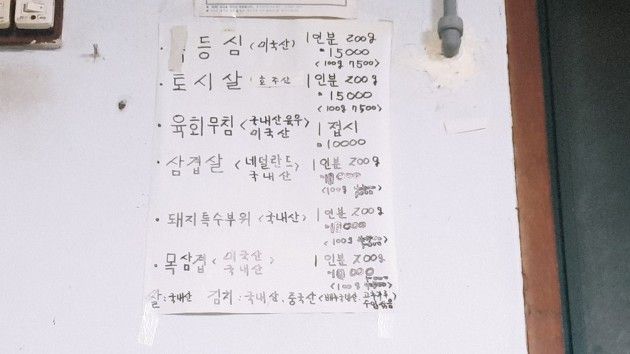 등심 (미국산) 1인분 200g
15000
(100g 7500)
토시살 호주산 1인분 200g
15000
(100g 7500)
육회무침 <국내산육우 1접시
미국산
10000
삼겹살 (네덜란드 1인분 200g
국내산
(100g
돼지특수부위 (국내산) 1인분 200g
(100g
목삼겹 (미국산 1인분 200g
국내산
(100g
쌀:국내산 김치:국내산, 중국산 (배추국내산,